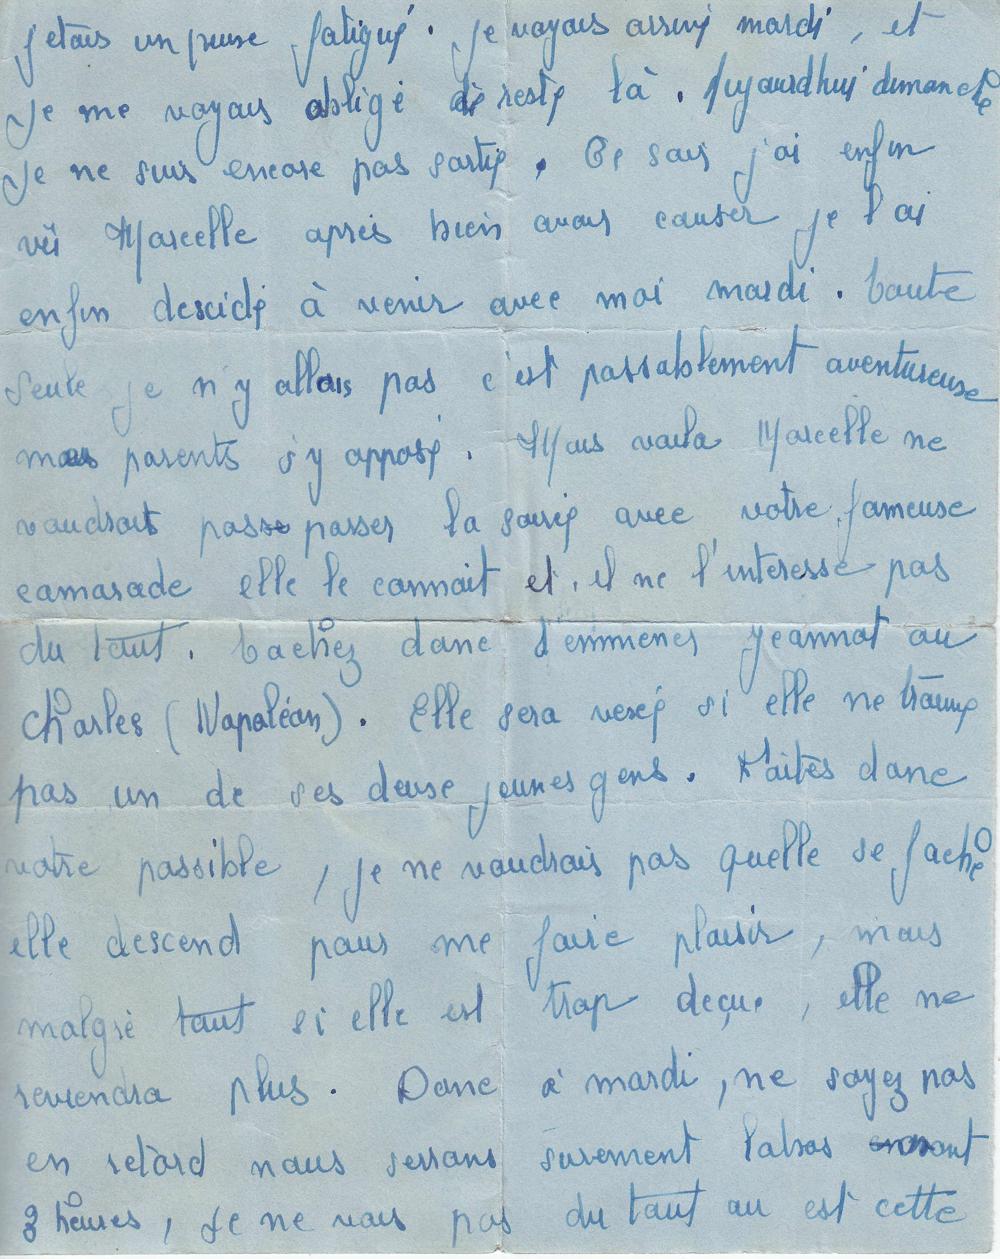 j'etais un peuse fatigué. Je voyais arrivé mardi, et
je me voyais obligé de resté là. Aujourdhui dimanche
je ne suis encore pas sortié. Ce soir j'ai enfin
vû Marcelle après bien avoir causer je l'ai
enfin descidé à venir avec moi mardi. Toute
seule je n'y allais pas c'est passablement aventureuse
mes parents s'y opposé. Mais voila Marcelle ne
voudrait pas passer la soiréé avec votre fameuse
camarade elle le connait et il ne l'interesse pas
du tout. Tachez donc d'emmener Jeannot ou
Charles (Napoléon). Elle sera vexéé si elle ne trouve
pas un de ses deuse jeunes gens. Faites donc
votre possible, je ne voudrais pas quelle se fache
elle descend pour me faire plaisir, mais
malgré tout si elle est trop deçue, elle ne
reviendra plus. Donc à mardi, ne soyez pas
en retard nous serrons surement labas avant
3 heures, Je ne vois pas du tout ou est cette